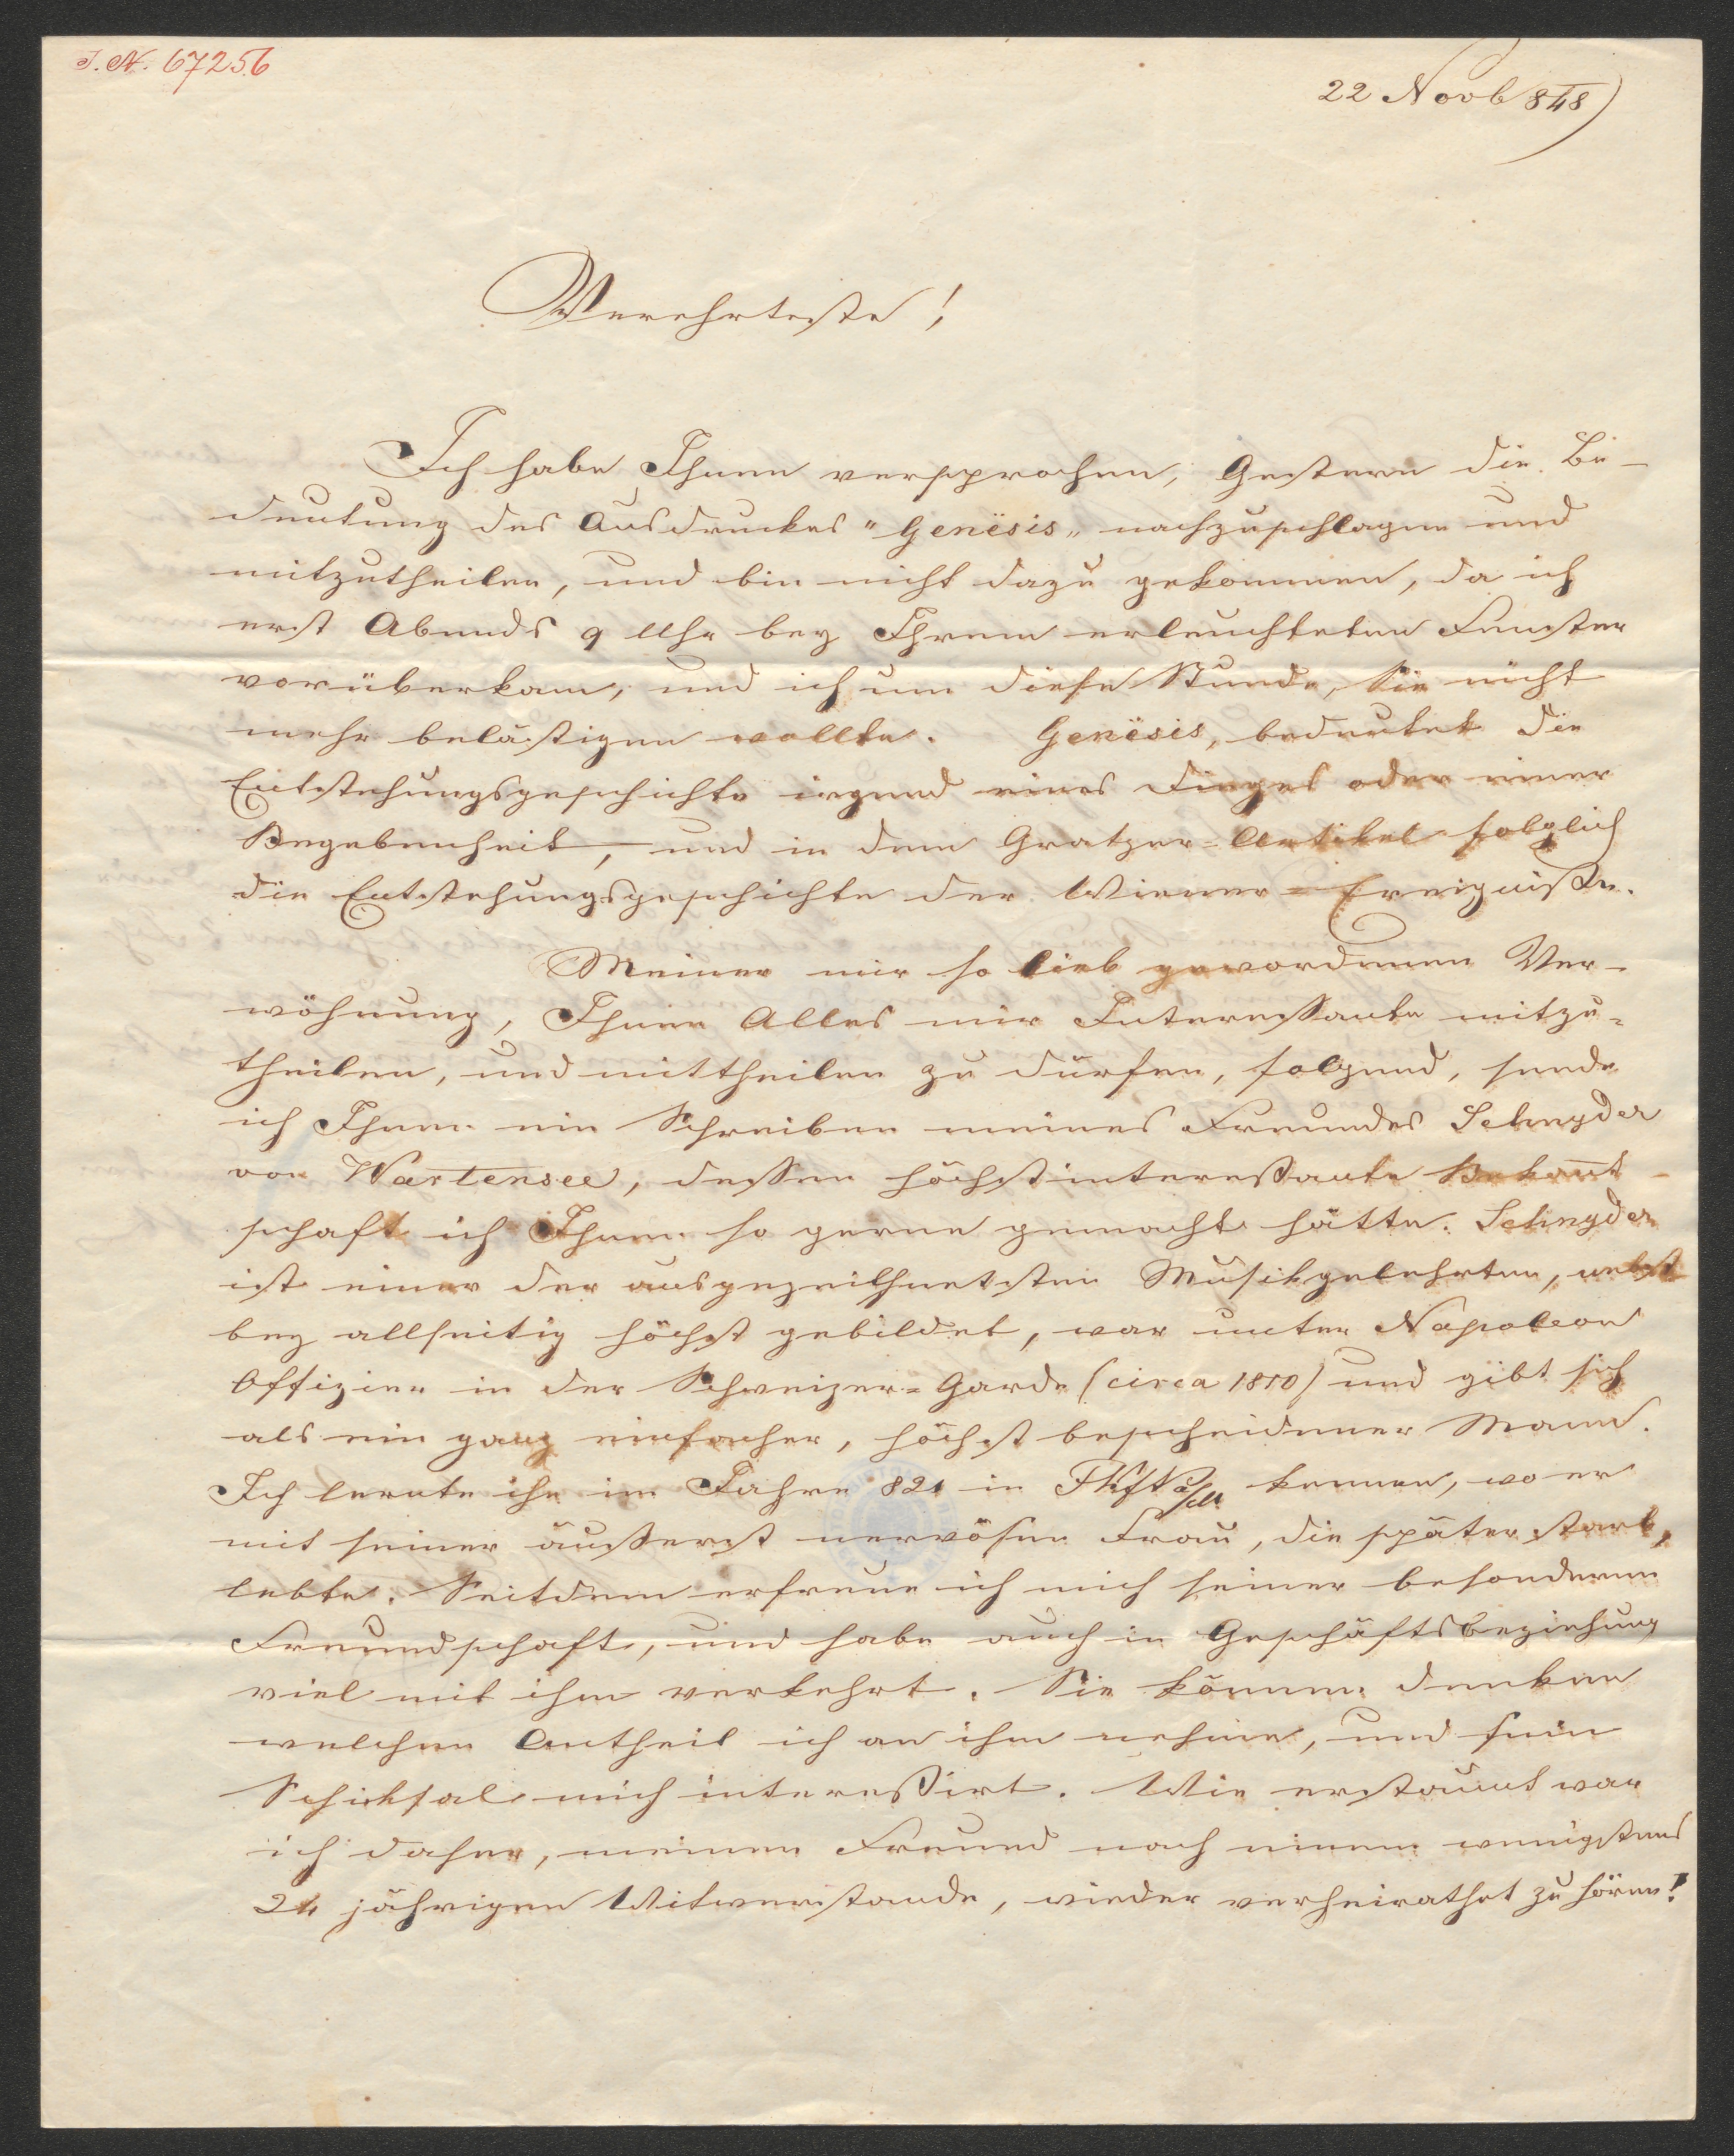 I. N. 67256
22 Novb 848
Verehrteste!
Ich habe Ihnen versprochen, Gestern die Be-
deutung des Ausdruckes "Genësis" nachzuschlagen und
mitzutheilen, und bin nicht dazu gekommen, da ich
erst Abends 9 Uhr bey Ihrem erleuchteten Fenster
vorüberkam, und ich um diese Stunde, Sie nicht
mehr belästigen wollte. Genësis, bedeutet die
Entstehungsgeschichte irgend eines Dinges oder einer
Begebenheit, und in dem Gratzer-Artikel folglich
die Entstehungsgeschichte der Wiener-Ereigniße.
Meiner mir so lieb gewordenen Ver-
wöhnung, Ihnen Alles mir Interessante mitzu-
theilen, und mittheilen zu dürfen, folgend, sende
ich Ihnen ein Schreiben meines Freundes Schnyder
von Wartensee, dessen höchstinteressante Bekañt-
schaft ich Ihnen so gerne gemacht hätte. Schnyder
ist einer der ausgezeichnetsten Musikgelehrten, nebst
bey allseitig höchst gebildet, war unter Napoleon
Offizier in der Schweizer-Garde (circa 1810) und gibt sich
als ein ganz einfacher, höchst bescheidener Mann.
Ich lernte ihn im Jahre 821 in Fkft a/M kennen, wo er
mit seiner äußerst nervösen Frau, die später starb,
lebte. Seitdem erfreue ich mich seiner besonderen
Freundschaft, und habe auch in Geschäftsbeziehung
viel mit ihm verkehrt. Sie können denken
welchen Antheil ich an ihm nehme, und sein
Schicksal mich interessirt. Wie erstaunt war
ich daher, meinen Freund nach einem wenigstens
24 jährigen Witwerstande, wieder verheirathet zu hören!